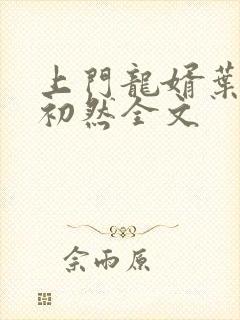 上門龍婿葉
初然全文
佘雨原